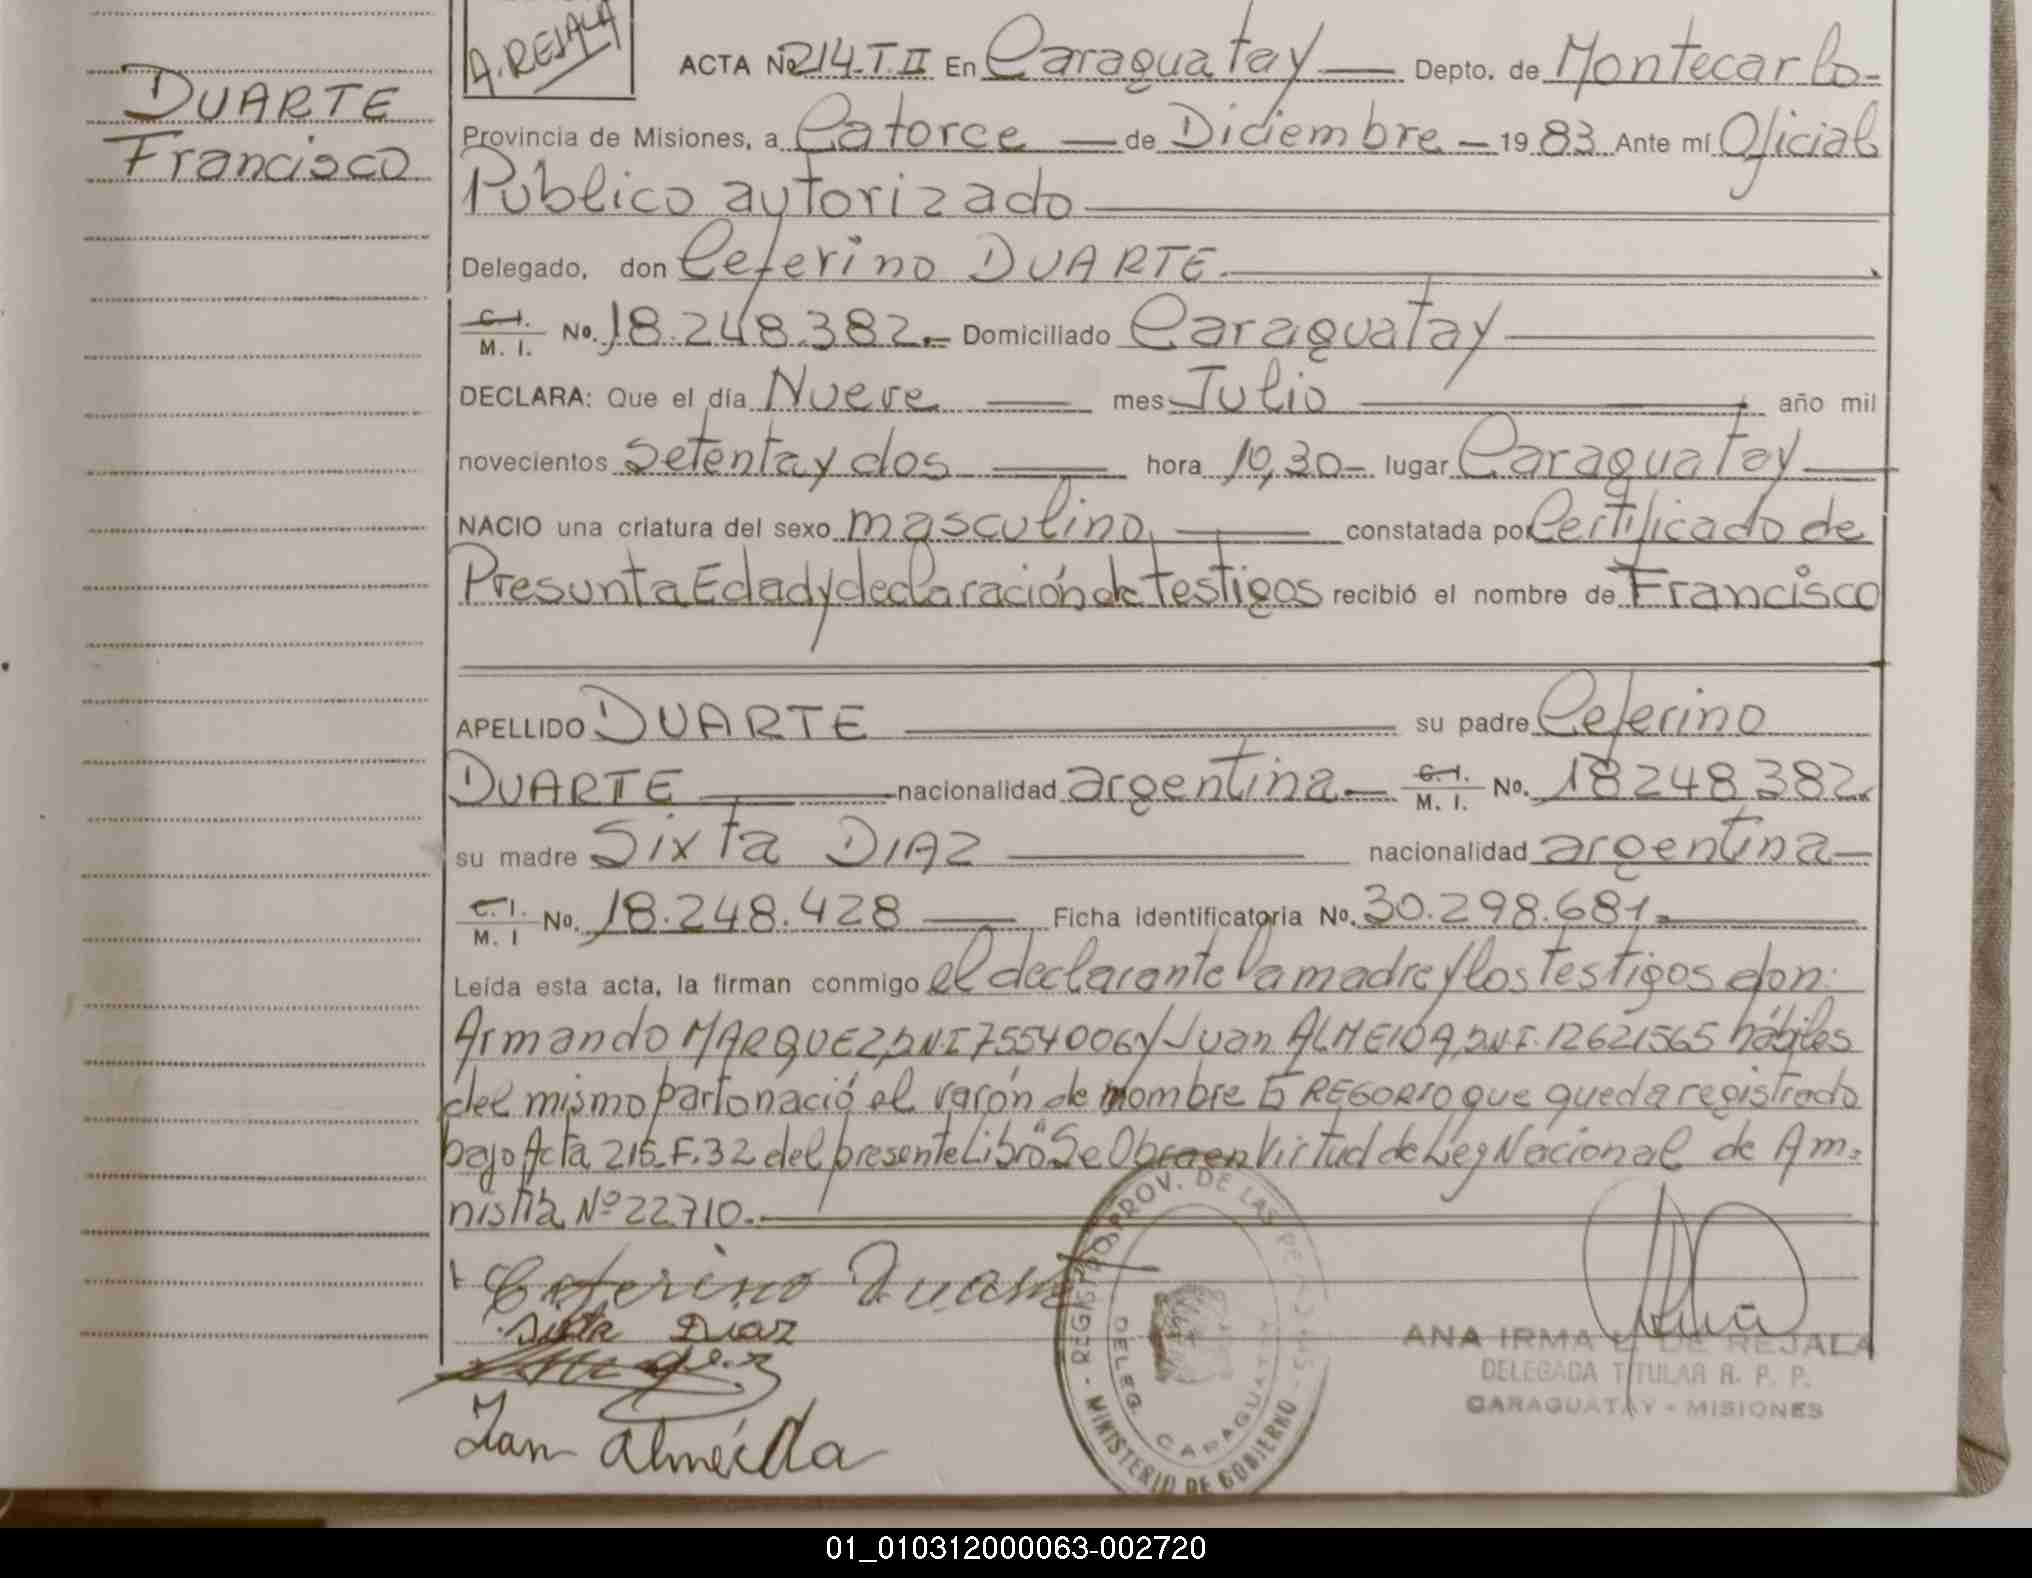 A. REJALA
DUARTE
Francisco
ACTA Nº 214.T.II En Caraguatay Depto. de Montecarlo-
Provincia de Misiones, a Catorce de Diciembre 1983 Ante mí Oficial
Público autorizado
Delegado, don Ceferino DUARTE.
C. I. M. I. No. 18.248.382.- Domiciliado Caraguatay
DECLARA: Que el día Nueve mes Julio año mil
novecientos setenta y dos hora 10,30- lugar Caraguatay
NACIO una criatura del sexo masculino, constatada por Certificado de
Presunta Edad y declaración de testigos recibió el nombre de Francisco
APELLIDO DUARTE su padre Ceferino
DUARTE nacionalidad argentina C. I. M. I. No. 18248382.
su madre Sixta DIAZ nacionalidad argentina
C. I. M. I No. 18.248.428 Ficha identificatoria No. 30.298.681.
Leída esta acta, la firman conmigo el declarante la madre y los testigos don:
Armando MARQUEZ, D.N.I 7554006 y Juan ALMEIDA, D.N.I. 12621565 hábiles
del mismo parto nació el varón de nombre GREGORIO que queda registrado
bajo Acta 215.F.32 del presente Libro" Se Obra en Virtud de Ley Nacional de Am=
nistía Nº 22.710.-
Ceferino Duarte
Sixta Diaz
Juan Almeida
REGISTRO PROV. DE LAS PERSONAS - MINISTERIO DE GOBIERNO -
DELEG. CARAGUATAY
ANA IRMA E. DE REJALA
DELEGADA TITULAR R. P. P.
CARAGUATAY - MISIONES
01_010312000063-002720